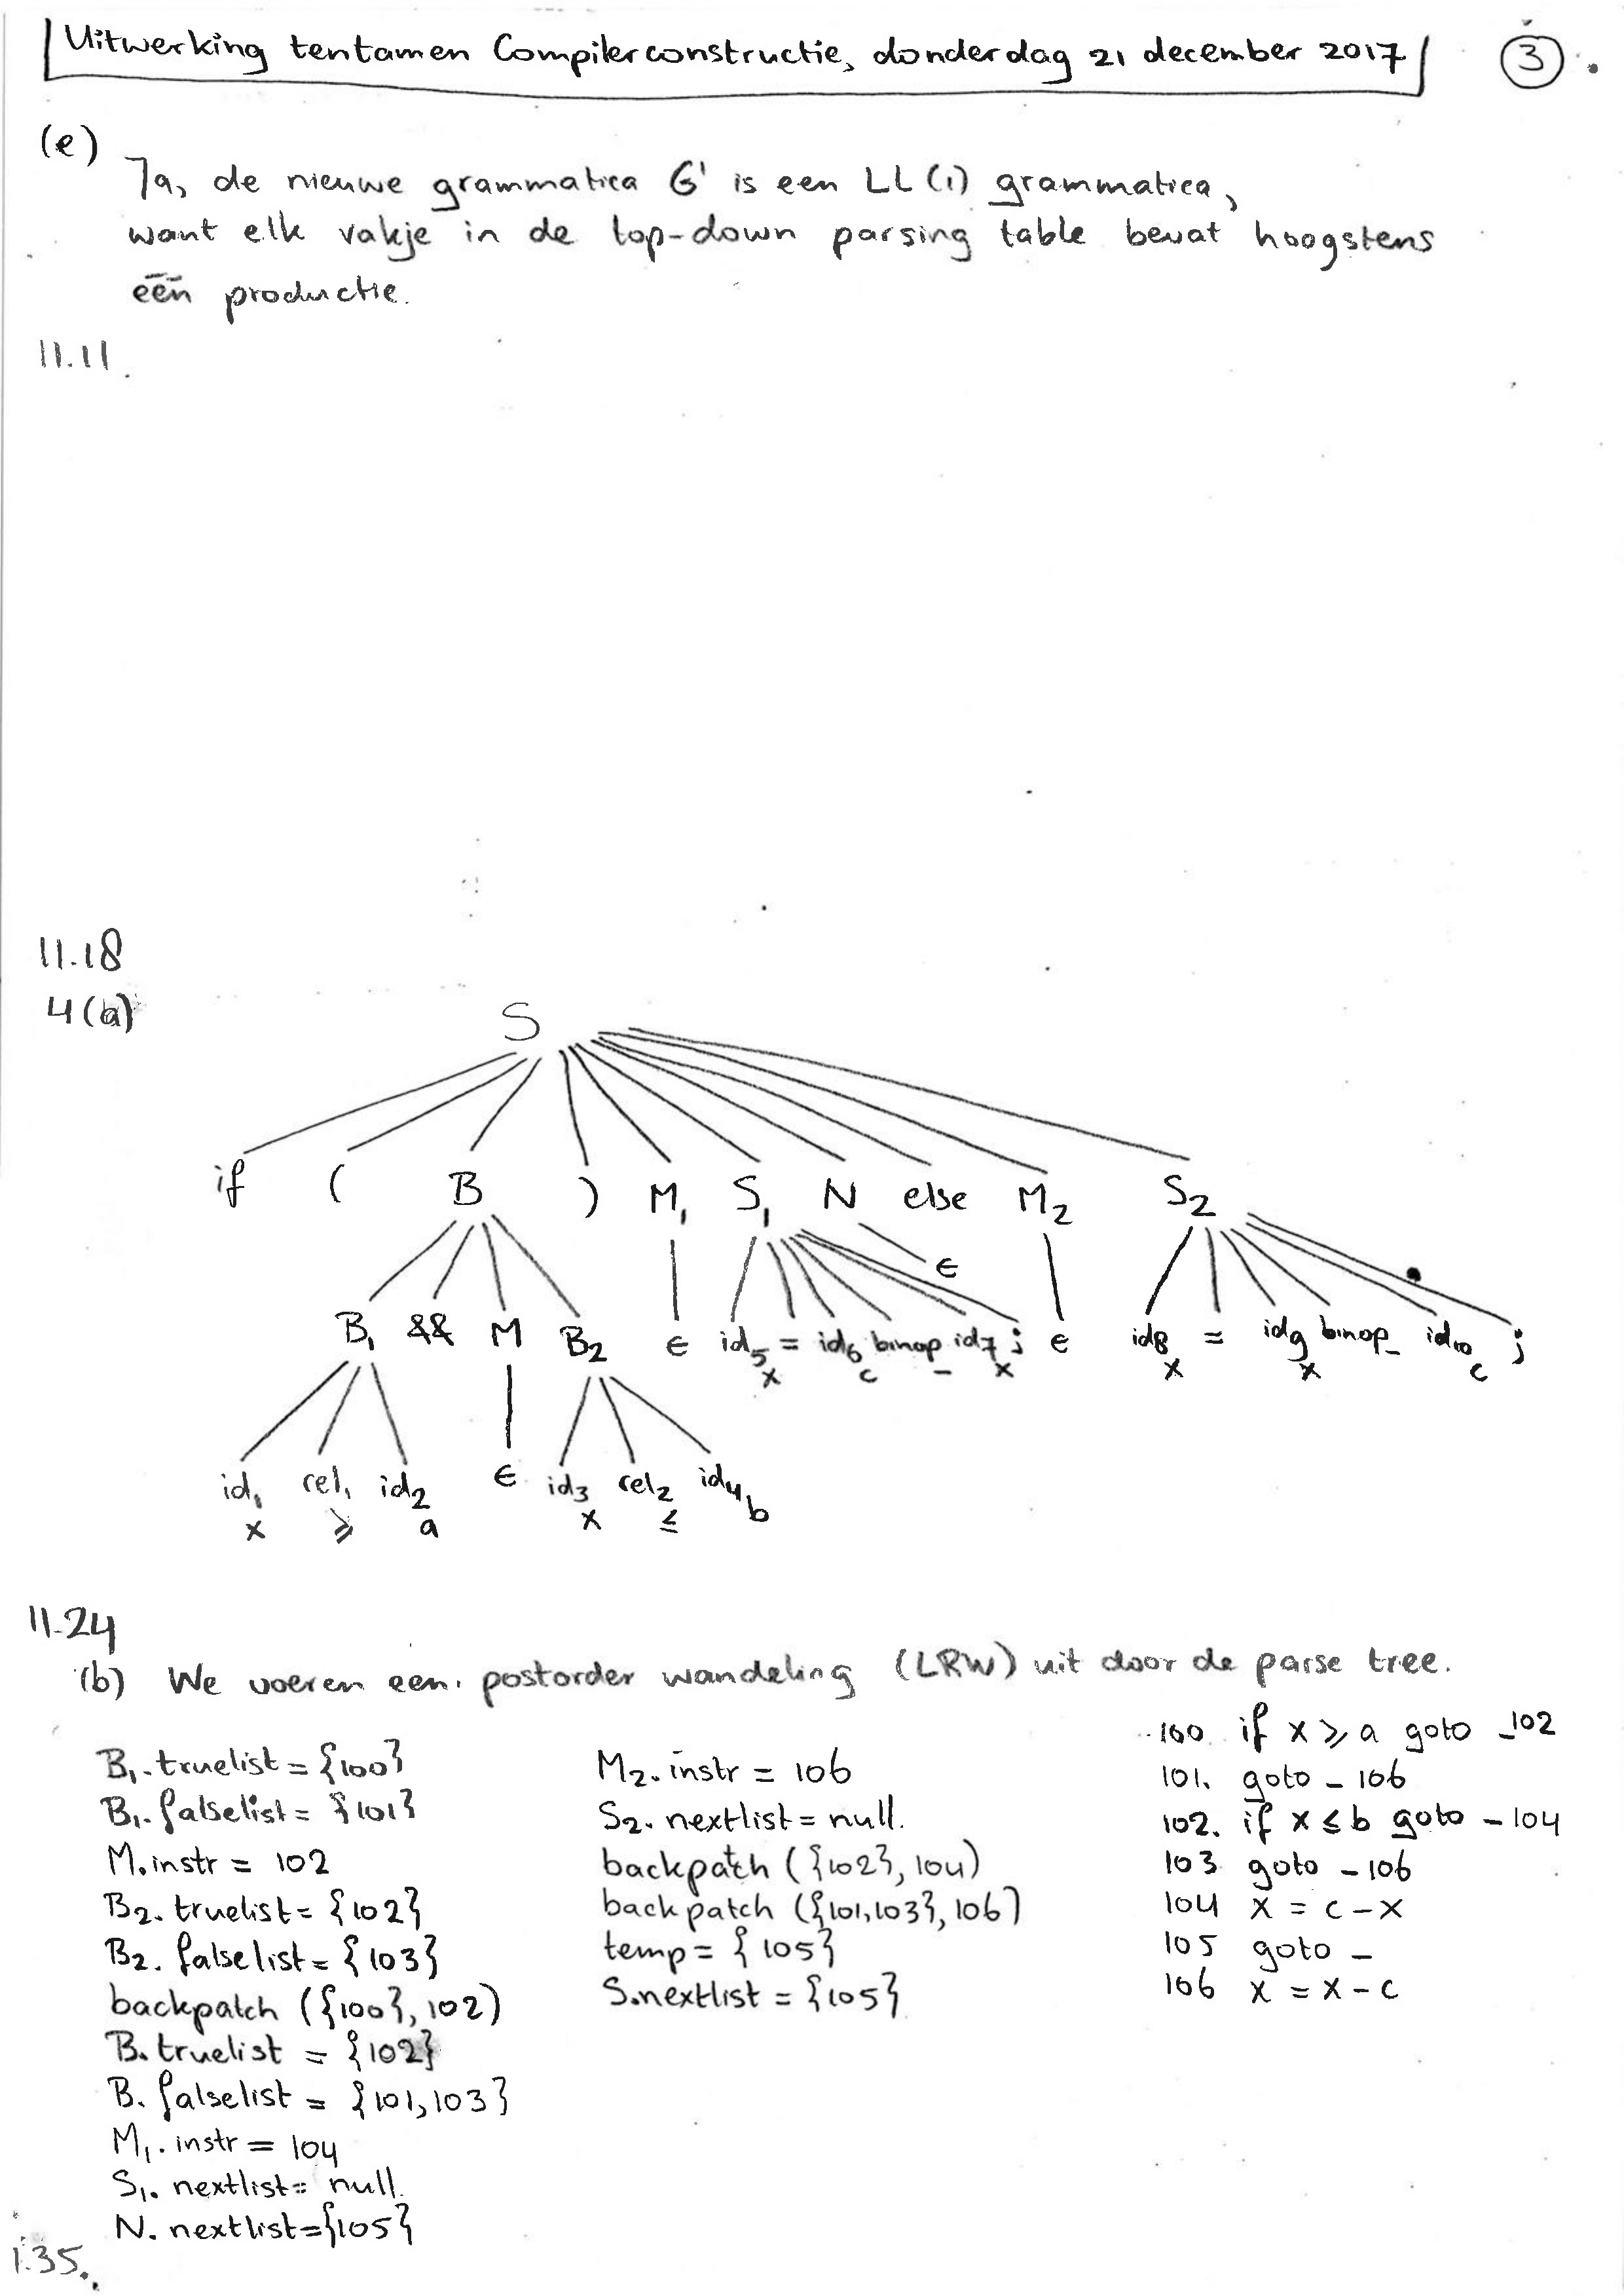 Uitwerking tentamen Compilerconstructie, donderdag 21 december 2017 3
(e)
Ja, de nieuwe grammatica G' is een LL(1) grammatica,
want elk vakje in de top-down parsing table bevat hoogstens
één productie.
11.11
11.18
4(a)
S
if ( B ) M1 S1 N else M2 S2
ϵ
B1 && M B2 ϵ id5 = id6 binop id7 ; ϵ id8 = id9 binop id10 ;
x c - x x x - c
id1 rel1 id2 ϵ id3 rel2 id4
x ≥ a x ≤ b
11.24
(b) We voeren een postorder wandeling (LRW) uit door de parse tree.
B1.truelist = {100}
B1.falselist = {101}
M.instr = 102
B2.truelist = {102}
B2.falselist = {103}
backpatch ({100}, 102)
B.truelist = {102}
B.falselist = {101,103}
M1.instr = 104
S1.nextlist = null
N.nextlist = {105}
M2.instr = 106
S2.nextlist = null.
backpatch ({102}, 104)
backpatch ({101,103}, 106)
temp = {105}
S.nextlist = {105}
100 if x ≥ a goto _102
101. goto _ 106
102. if x ≤ b goto _ 104
103 goto _ 106
104 x = c - x
105 goto _
106 x = x - c
1.35.